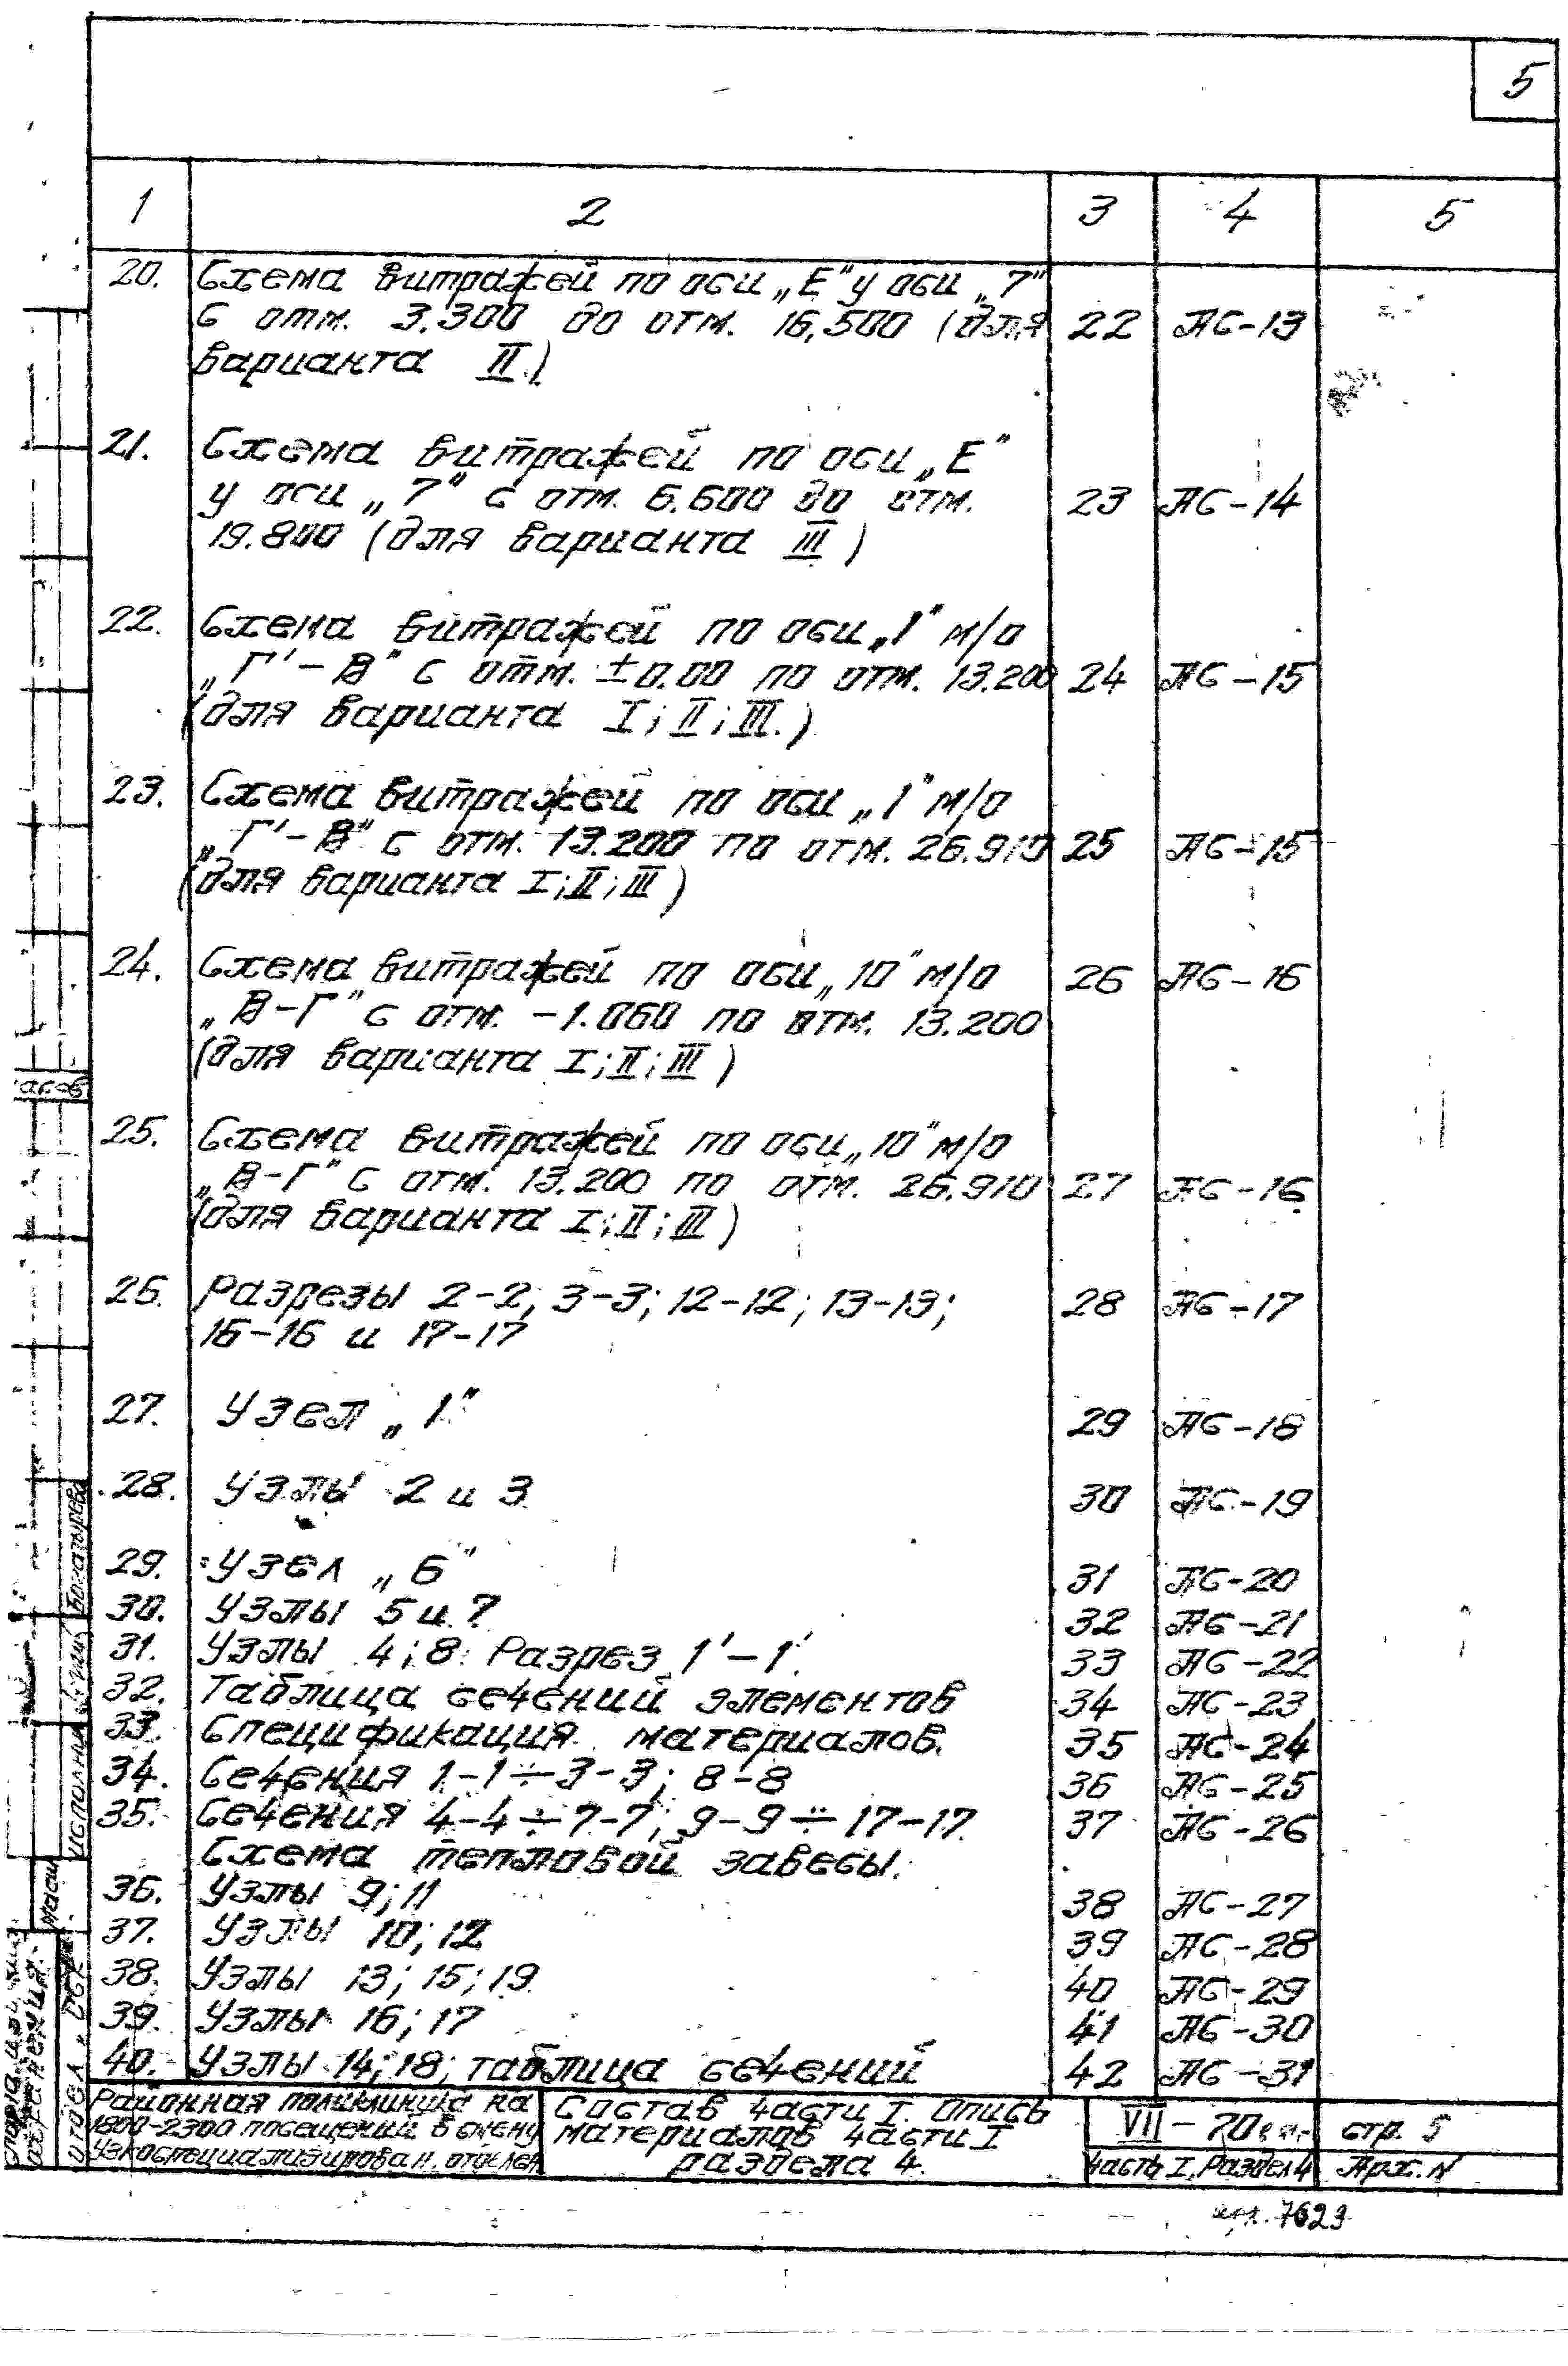 5
1 2 3 4 5
20. Схема витражей по оси „Е“ у оси „7“
с отм. 3.300 до отм. 16,500 (для 22 АС-13
варианта II.)
21. Схема витражей по оси „Е“
у оси „7“ с отм. 6.600 до отм. 23 АС-14
19.800 (для варианта III)
22. Схема витражей по оси „1“ м/о
„Г'-В“ с отм. ±0.00 по отм. 13.200 24 АС-15
(для варианта I; II; III.)
23. Схема витражей по оси „1“ м/о
„Г'-В“ с отм. 13.200 по отм. 26.910 25 АС-15
(для варианта I; II; III)
24. Схема витражей по оси „10“ м/о 26 АС-16
„В-Г“ с отм. -1.060 по отм. 13.200
(для варианта I; II; III)
25. Схема витражей по оси „10“ м/о
„В-Г“ с отм. 13.200 по отм. 26.910 27 АС-16
(для варианта I; II; III)
26. Разрезы 2-2; 3-3; 12-12; 13-13; 28 АС-17
16-16 и 17-17
27. Узел „1“ 29 АС-18
28. Узлы 2 и 3 30 АС-19
29. Узел „6“ 31 АС-20
30. Узлы 5 и 7 32 АС-21
31. Узлы 4; 8. Разрез 1'-1'. 33 АС-22
32. Таблица сечений элементов 34 АС-23
33. Спецификация материалов. 35 АС-24
34. Сечения 1-1÷3-3; 8-8 36 АС-25
35. Сечения 4-4÷7-7; 9-9÷17-17. 37 АС-26
Схема тепловой завесы.
36. Узлы 9; 11 38 АС-27
37. Узлы 10; 12 39 АС-28
38. Узлы 13; 15; 19 40 АС-29
39. Узлы 16; 17 41 АС-30
40. Узлы 14; 18; таблица сечений 42 АС-31
Районная поликлиника на
1800-2300 посещений в смену
узкоспециализирован. отделен
Состав части I. Опись
материалов части I
раздела 4.
VII-70
часть I, Раздел 4
стр. 5
Арх. N
7623
исполнил
отдел